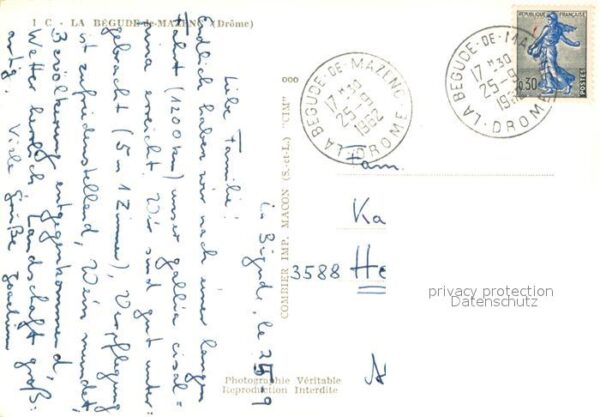 1 C - LA BÉGUDE-de-MAZENC (Drôme)
la Bégude, le 25-9
Liebe Familie!
Endlich haben wir nach einer langen
Fahrt (1200 km) unser gallia cisal=
pina erreicht. Wir sind gut unter=
gebracht (5 in 1 Zimmer), Verpflegung
ist zufriedenstellend, Wein mundet,
Bevölkerung entgegenkommend,
Wetter herrlich, Landschaft groß=
artig. Viele Grüße Joachim
COMBIER IMP. MACON (S.-et-L.) "CIM"
Photographie Véritable
Reproduction Interdite
REPUBLIQUE FRANÇAISE
0,30
POSTES
LA BEGUDE-DE-MAZENC
17 H 30
25-9
1962
DROME
LA BEGUDE-DE-MA
17 H 30
25-9
DROME
Fam.
Ka
3588 He
privacy protection
Datenschutz